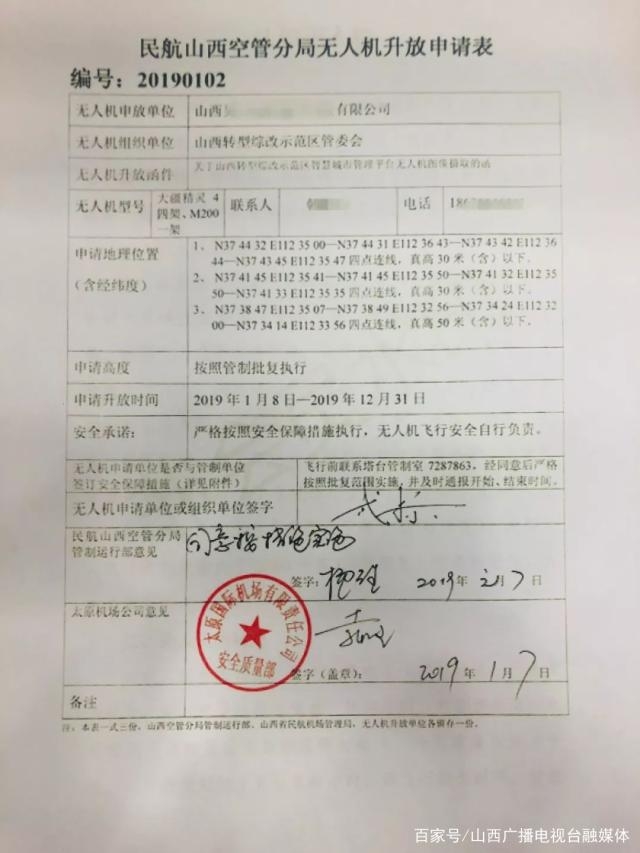 民航山西空管分局无人机升放申请表
编号：20190102
无人机申放单位 山西 有限公司
无人机组织单位 山西转型综改示范区管委会
无人机升放函件 关于山西转型综改示范区智慧城市管理平台无人机图像摄取的函
无人机型号 大疆精灵 4 四架、M200 一架 联系人 电话 18
申请地理位置
（含经纬度）
1、 N37 44 32 E112 35 00—N37 44 31 E112 36 43—N37 43 42 E112 36
44—N37 43 45 E112 35 47 四点连线，真高 30 米（含）以下。
2、 N37 41 45 E112 35 41—N37 41 45 E112 35 50—N37 41 32 E112 35
50—N37 41 33 E112 35 35 四点连线，真高 30 米（含）以下。
3、 N37 38 47 E112 35 07—N37 38 49 E112 32 56—N37 34 24 E112 32
00—N37 34 14 E112 33 56 四点连线，真高 50 米（含）以下。
申请高度 按照管制批复执行
申请升放时间 2019 年 1 月 8 日—2019 年 12 月 31 日
安全承诺： 严格按照安全保障措施执行，无人机飞行安全自行负责。
无人机申请单位是否与管制单位
签订安全保障措施（详见附件）
飞行前联系塔台管制室 7287863，经同意后严格
按照批复范围实施，并及时通报开始、结束时间。
无人机申请单位或组织单位签字
民航山西空管分局
管制运行部意见
同意按
签字： 2019 年 月 7 日
太原机场公司意见
太原国际机场有限责任公司
安全质量部
签字（盖章）： 2019 年 1 月 7 日
备注
注：本表一式三份，山西空管分局管制运行部、山西省民航机场管理局、无人机升放单位各留存一份。
百家号/山西广播电视台融媒体